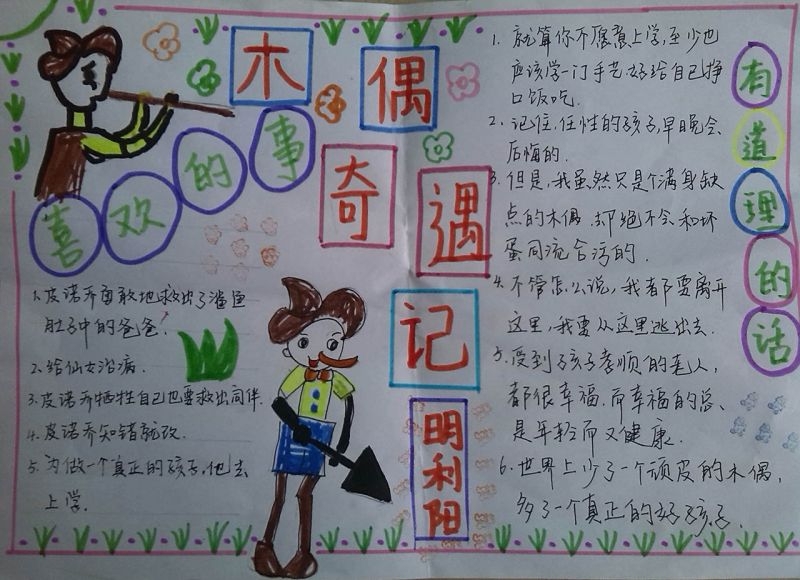 木偶奇遇记
明利阳
喜欢的事
1、皮诺乔勇敢地救出了鲨鱼
肚子中的爸爸！
2、给仙女治病.
3、皮诺乔牺牲自己也要救出同伴.
4、皮诺乔知错就改.
5、为做一个真正的孩子,他去
上学.
有道理的话
1、就算你不愿意上学,至少也
应该学一门手艺.好给自己挣
口饭吃.
2、记住,任性的孩子,早晚会
后悔的.
3、但是,我虽然只是个满身缺
点的木偶.却绝不会和坏
蛋同流合污的.
4、不管怎么说,我都要离开
这里,我要从这里逃出去.
5、受到孩子孝顺的老人,
都很幸福.而幸福的总、
是年轻而又健康.
6、世界上少了一个顽皮的木偶,
多了一个真正的好孩子.